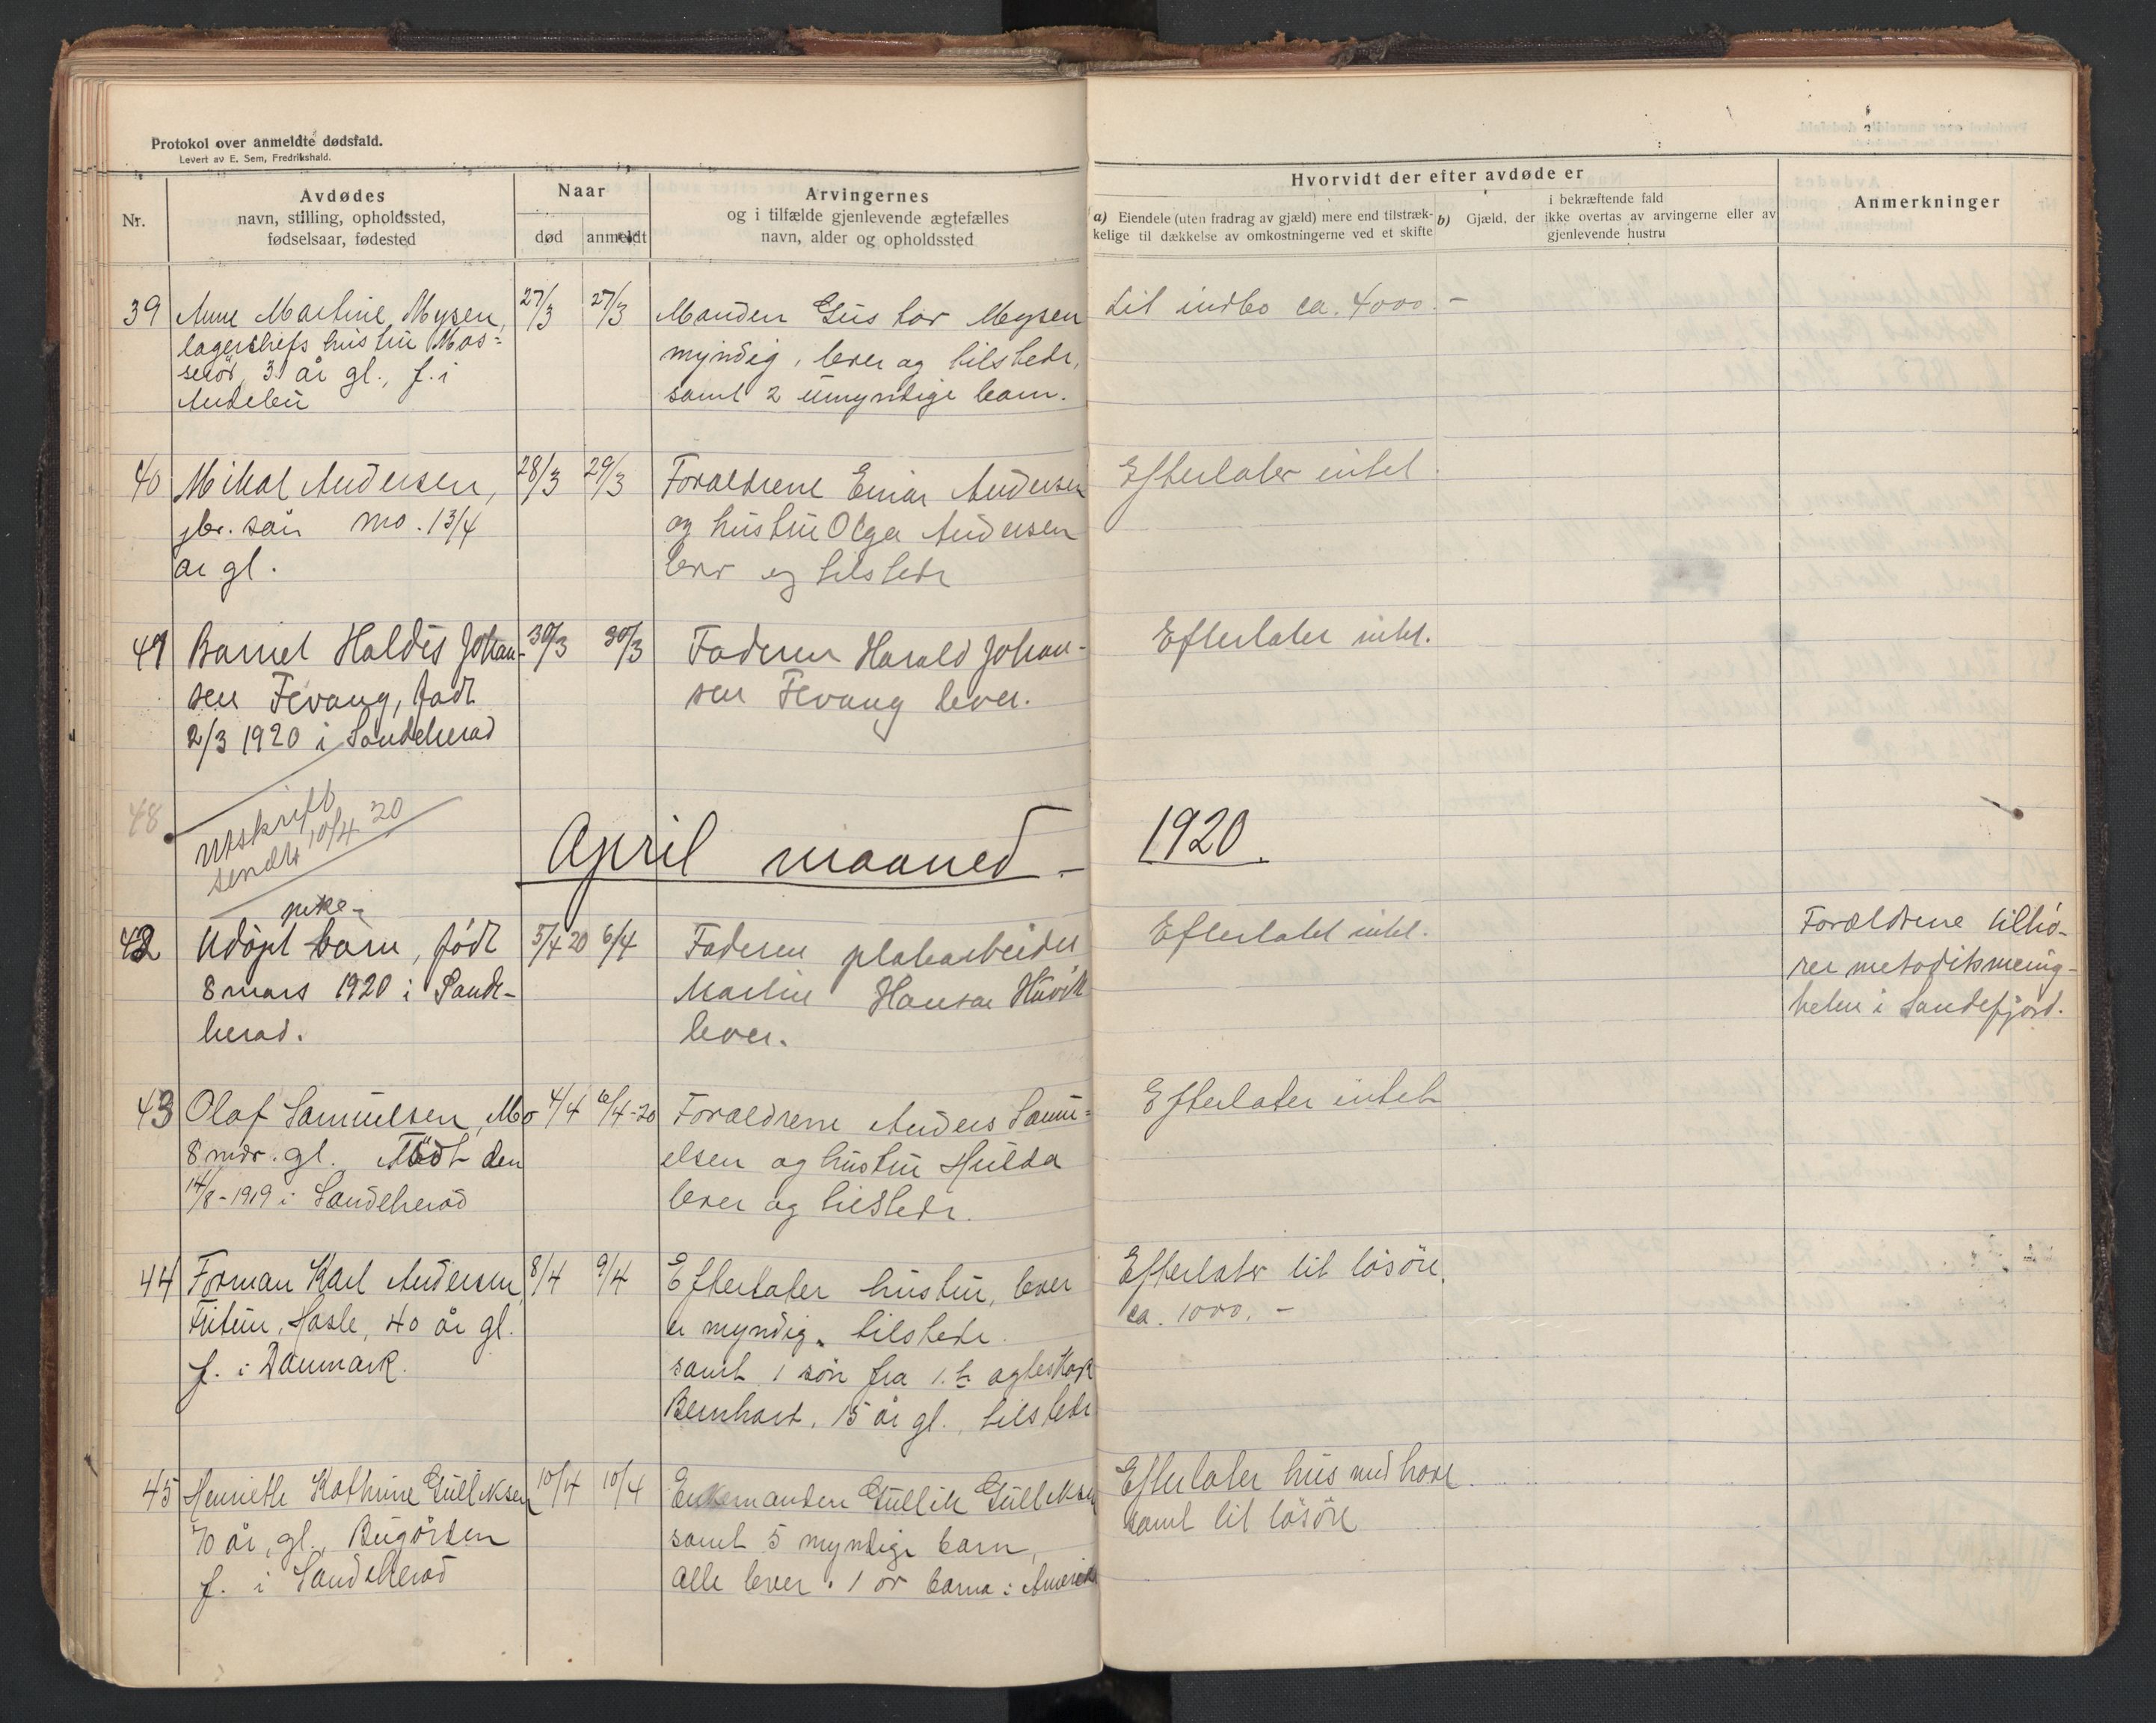 Protokol over anmeldte dødsfald.
Levert av E. Sem, Fredrikshald.
Nr.
Avdødes
navn, stilling, opholdssted,
fødselsaar, fødested
Naar
død
anmeldt
Arvingernes
og i tilfælde gjenlevende ægtefælles
navn, alder og opholdssted
Hvorvidt der efter avdøde er
a) Eiendele (uten fradrag av gjæld) mere end tilstræk-
kelige til dækkelse av omkostningerne ved et skifte
i bekræftende fald
b) Gjæld, der ikke overtas av arvingerne eller av
gjenlevende hustru
Anmerkninger
39 Anne Martine Mysen, 27/3 27/3 Manden Gustav Mysen Lit indbo ca. 4000.-
lagerchefs hustru Mos= myndig, lever og tilstede,
serød, 31 år gl., f. i samt 2 umyndige barn.
Andebu
40 Mikal Andersen, 28/3 29/3 Forældrene Einar Andersen Efterlater intet.
gbr. sön Mo. 13/4 og hustru Olga Andersen
år gl. lever og tilstede
41 Barnet Haldis Johan- 30/3 30/3 Faderen Harald Johan- Efterlater intet.
sen Fevang, født sen Fevang lever.
2/3 1920 i Sandeherad
48
Utskrift
sendt 10/4 20
April maaned - 1920.
pike-
42 Udöpt barn, født 5/4 20 6/4 Faderen platearbeider Efterlatet intet. Forældrene tilhö-
8 mars 1920 i Sande- Martin Hansen Huvik rer metodistmenig-
herad. lever. heten i Sandefjord.
43 Olaf Samuelsen, Mo 4/4 6/4-20 Forældrene Anders Samu= Efterlater intet
8 mdr. gl. Född den elsen og hustru Hulda
14/8-1919 i Sandeherad lever og tilstede.
44 Forman Karl Andersen, 8/4 9/4 Efterlater hustru, lever Efterlater lit lösöre.
Hasle, 40 år gl. er myndig. tilstede. ca. 1000.-
f. i Danmark. samt 1 sön fra 1.ste ægteskap
Bernhart, 15 år gl., tilstede
45 Henriette Kathrine Gulliksen 10/4 10/4 Enkemanden Gullik Gulliksen Efterlater hus med have
70 år, gl., Bugården samt 5 myndige barn, samt lit lösöre
f. i Sandeherad alle lever. 1 av barna i Amerika